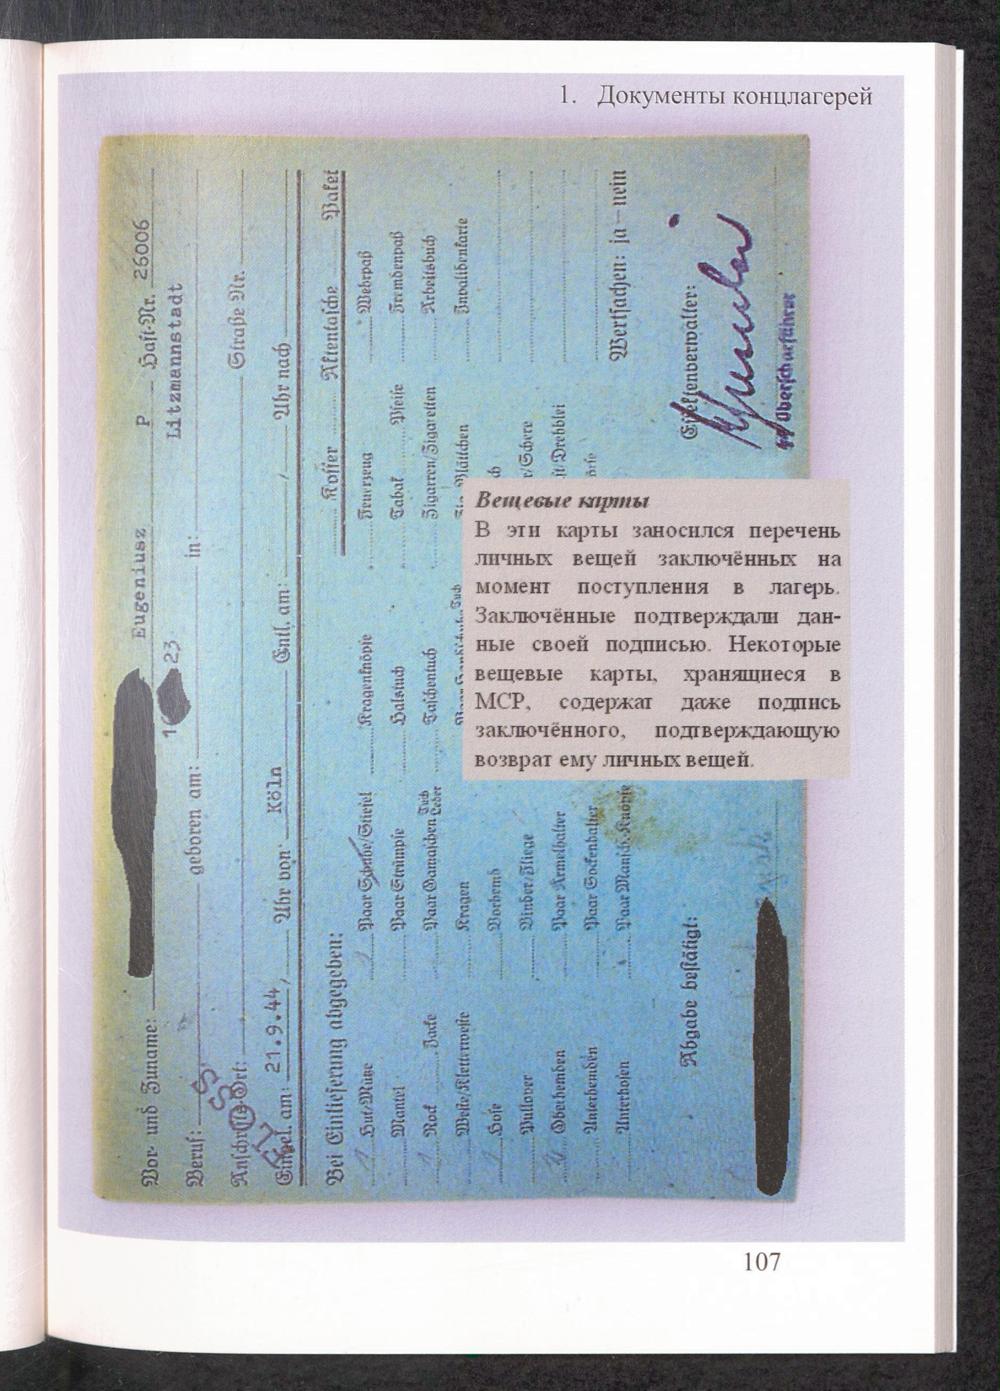 1. Документы концлагерей
Vor- und Zuname: Eugeniusz P Haft-Nr. 26006
1 23 Litzmannstadt
Beruf: geboren am: in:
Anschrifts-Ort: Straße Nr.
Eingel. am: 21.9.44, Uhr von: Köln Entl. am: / Uhr nach
Koffer Aktentasche Paket
Bei Einlieferung abgegeben:
Hut/Mütze Paar Schuhe/Stiefel Kragenknöpfe Feuerzeug Wehrpaß
Mantel Paar Strümpfe Halstuch Tabak Pfeife Fremdenpaß
Rock Jacke Paar Gamaschen Tuch Leder Taschentuch Zigarren/Zigaretten Arbeitsbuch
Weste/Kletterweste Kragen Invalidenkarte
Hose Vorhemd
Pullover Binder/Fliege r/Schere
Oberhemden Paar Ärmelhalter ft/Drehblei
Unterhemden Paar Sockenhalter
Unterhosen Paar Mansch.-Knöpfe Wertsachen: ja – nein
Abgabe bestätigt: Effektenverwalter:
SS Oberscharführer
Вещевые карты
В эти карты заносился перечень
личных вещей заключённых на
момент поступления в лагерь.
Заключённые подтверждали дан-
ные своей подписью. Некоторые
вещевые карты, хранящиеся в
МСР, содержат даже подпись
заключённого, подтверждающую
возврат ему личных вещей.
107